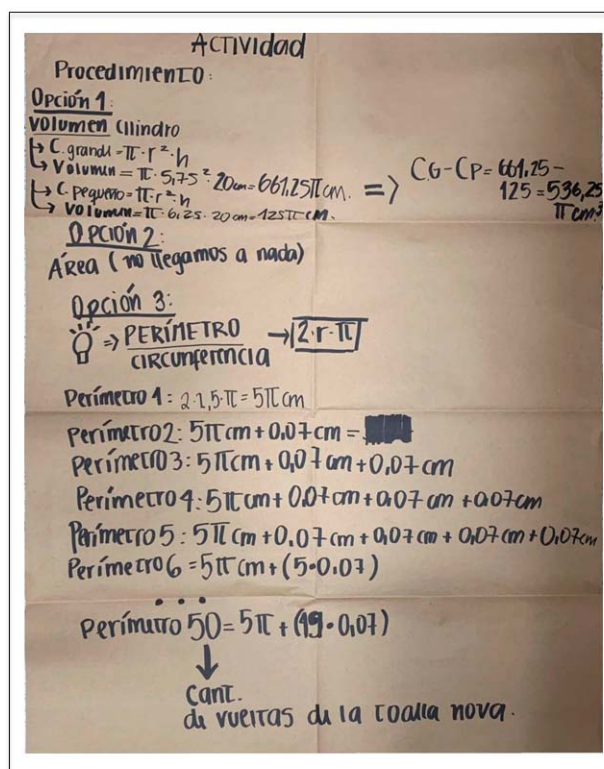 ACTIVIDAD
Procedimiento:
Opción 1:
Volumen Cilindro
↳ C. grande = π · r² · h
↳ Volumen = π · 5,75² · 20cm = 661,25π cm. => CG - CP = 661,25 -
↳ C. pequeño = π · r² · h 125 = 536,25
↳ Volumen = π · 6,25 · 20cm = 125π cm. π cm³
OPCIÓN 2:
Área (no llegamos a nada)
Opción 3:
=> PERÍMETRO → 2·r·π
CIRCUNFERENCIA
Perímetro 1: 2·2,5·π = 5π cm
Perímetro 2: 5π cm + 0,07 cm =
Perímetro 3: 5π cm + 0,07 cm + 0,07 cm
Perímetro 4: 5π cm + 0,07 cm + 0,07 cm + 0,07 cm
Perímetro 5: 5π cm + 0,07 cm + 0,07 cm + 0,07 cm + 0,07 cm
Perímetro 6 = 5π cm + (5·0,07)
• • •
Perímetro 50 = 5π + (49·0,07)
↓
Cant.
de vueltas de la toalla nova.